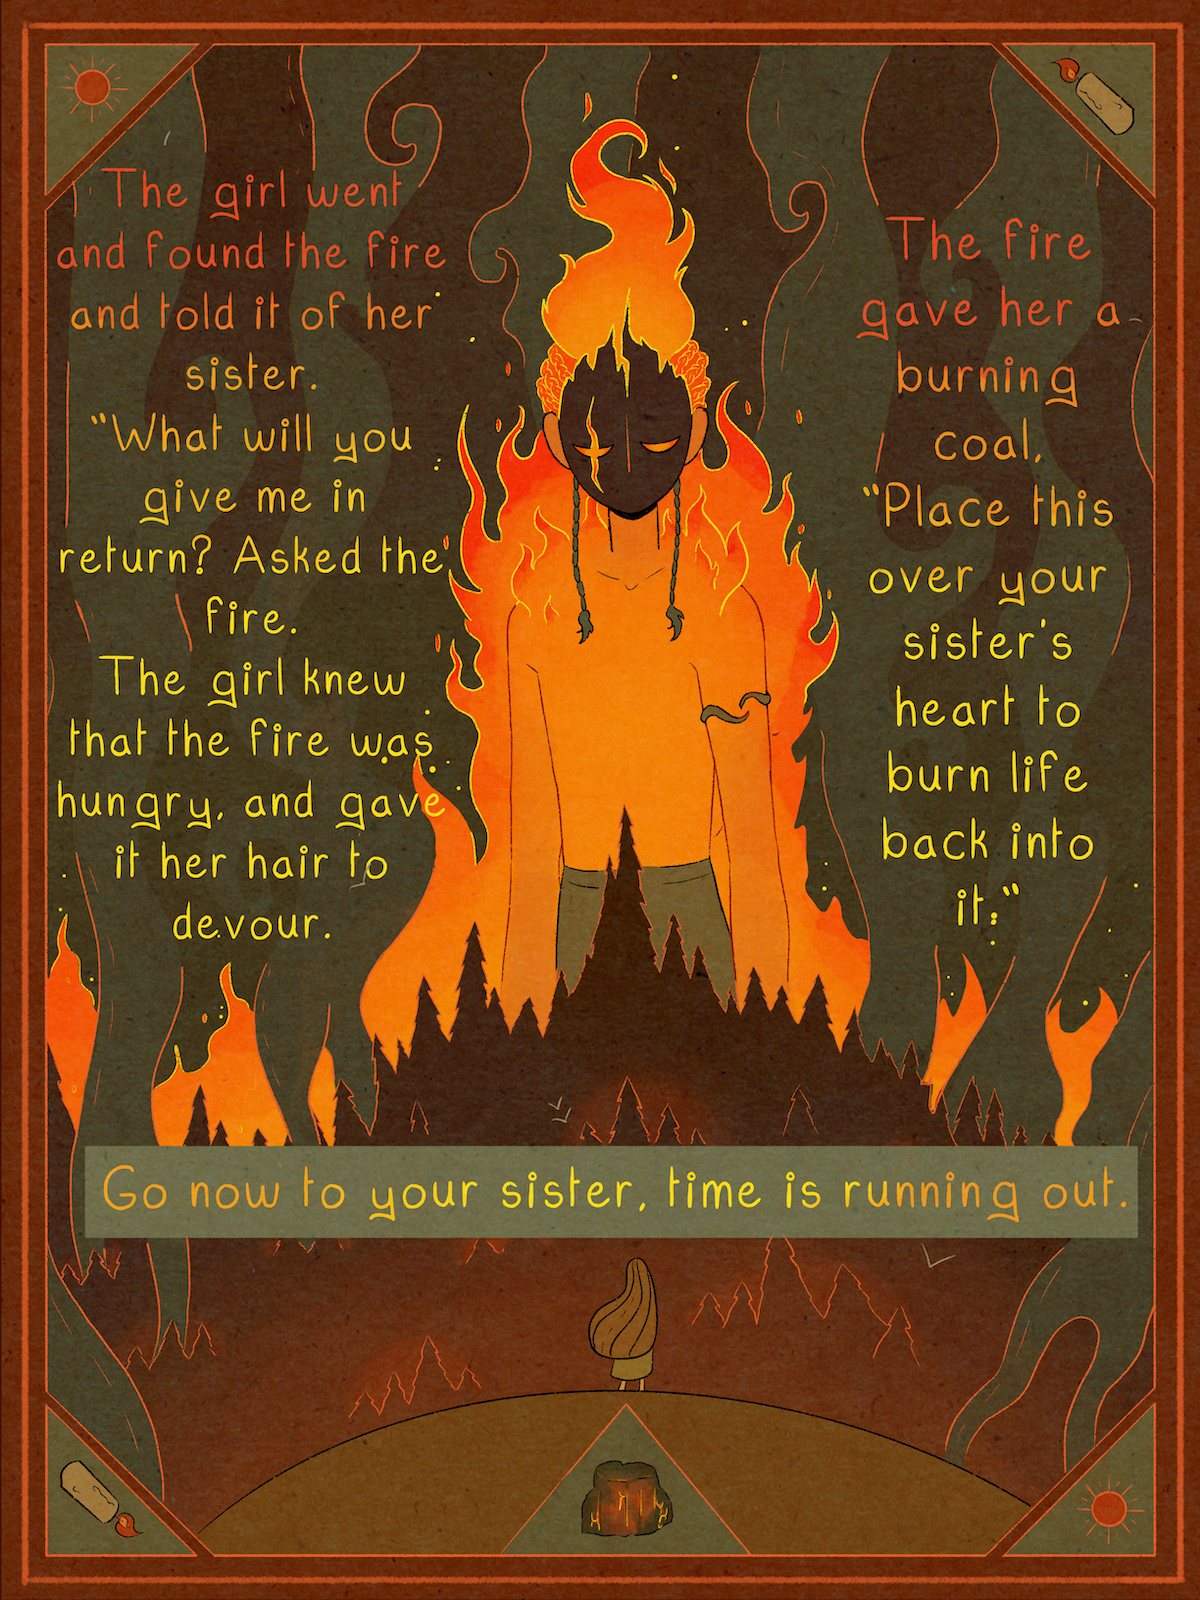 The girl went
and found the fire
and told it of her
sister.
"What will you
give me in
return? Asked the
fire.
The girl knew
that the fire was
hungry, and gave
it her hair to
devour.
The fire
gave her a
burning
coal,
"Place this
over your
sister's
heart to
burn life
back into
it;"
Go now to your sister, time is running out.